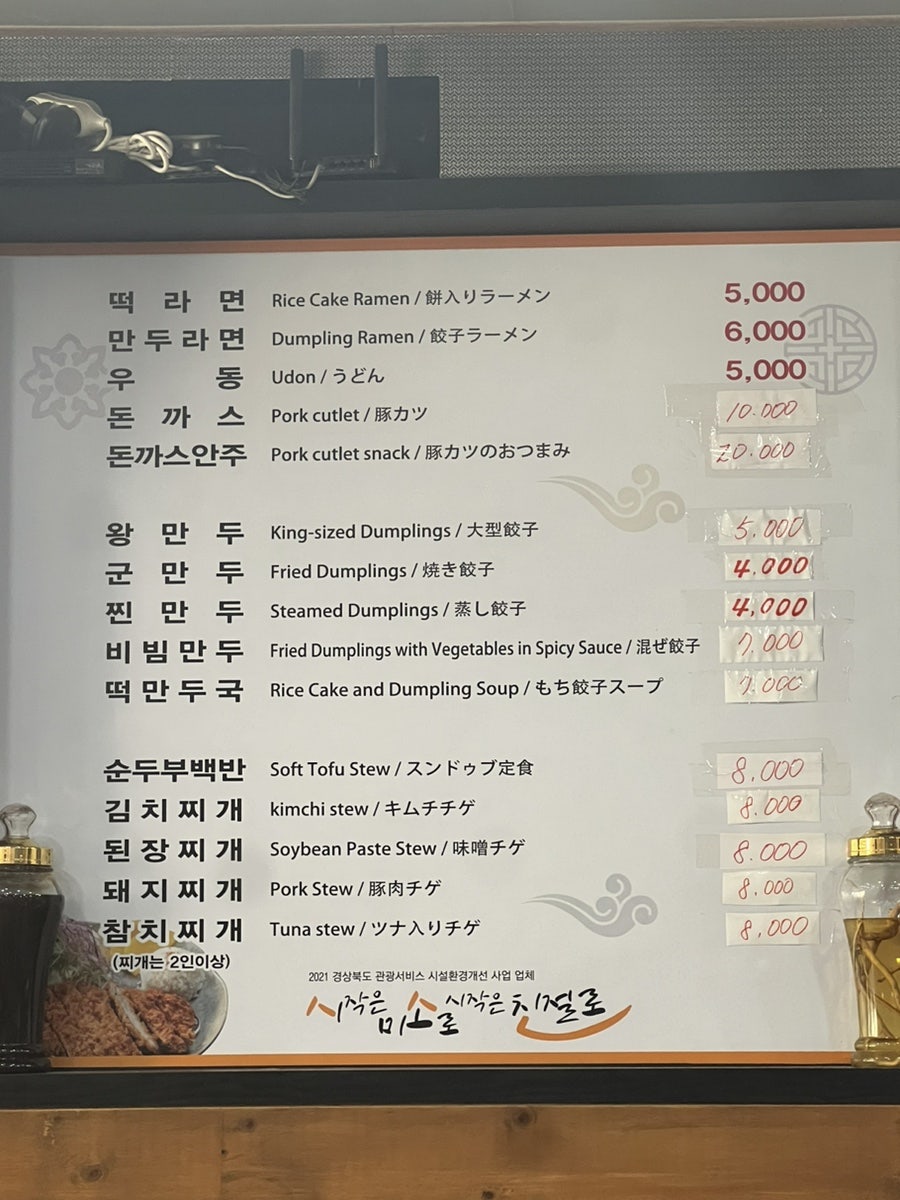 떡라면 Rice Cake Ramen / 餅入りラーメン 5,000
만두라면 Dumpling Ramen / 餃子ラーメン 6,000
우동 Udon / うどん 5,000
돈까스 Pork cutlet / 豚カツ 10.000
돈까스안주 Pork cutlet snack / 豚カツのおつまみ 20.000
왕만두 King-sized Dumplings / 大型餃子 5.000
군만두 Fried Dumplings / 焼き餃子 4.000
찐만두 Steamed Dumplings / 蒸し餃子 4,000
비빔만두 Fried Dumplings with Vegetables in Spicy Sauce / 混ぜ餃子 7.000
떡만두국 Rice Cake and Dumpling Soup / もち餃子スープ 7.000
순두부백반 Soft Tofu Stew / スンドゥブ定食 8.000
김치찌개 kimchi stew / キムチチゲ 8.000
된장찌개 Soybean Paste Stew / 味噌チゲ 8.000
돼지찌개 Pork Stew / 豚肉チゲ 8.000
참치찌개 Tuna stew / ツナ入りチゲ 8,000
(찌개는 2인이상)
2021 경상북도 관광서비스 시설환경개선 사업 업체
시작은 미소로 시작은 친절로